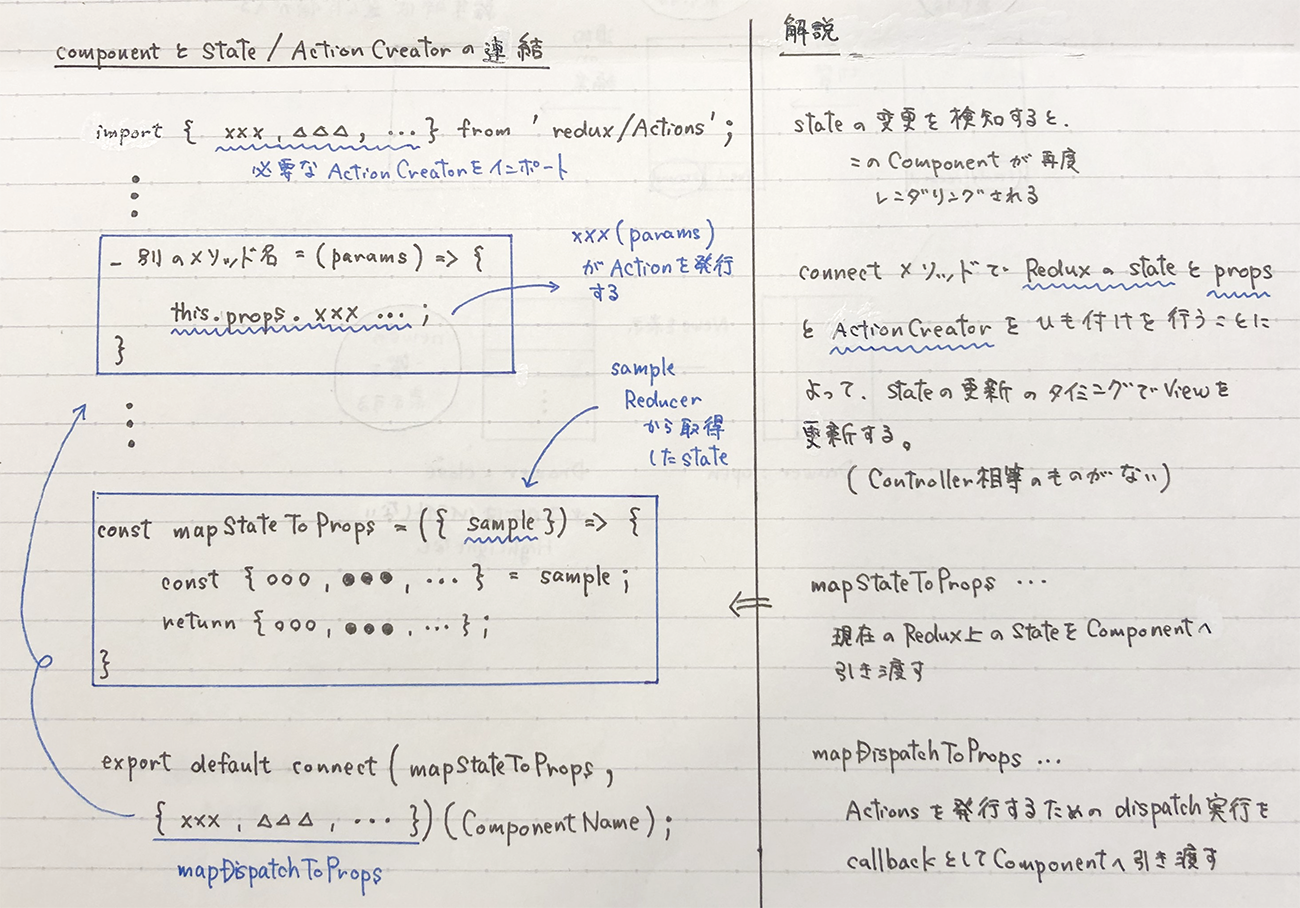 component と State / Action Creator の 連結
import { xxx , △△△, ... } from 'redux/Actions';
必要な Action Creatorをインポート
_ 別のメソッド名 = (params) => {
this.props.xxx ... ;
}
xxx (params)
がActionを発行
する
sample
Reducer
から取得
したstate
const mapStateToProps = ({ sample }) => {
const { ○○○ , ●●● , ... } = sample ;
return { ○○○ , ●●● , ... } ;
}
export default connect ( mapStateToProps ,
{ xxx , △△△ , ... }) ( Component Name ) ;
mapDispatchToProps
解説
stateの変更を検知すると、
このComponentが再度
レンダリングされる
connect メソッドで Reduxのstateとprops
と ActionCreator をひも付けを行うことに
よって、stateの更新のタイミングでViewを
更新する。
(Controller相等のものがない)
mapStateToProps ...
現在のRedux上のStateをComponentへ
引き渡す
mapDispatchToProps ...
Actionsを発行するためのdispatch実行を
callbackとしてComponentへ引き渡す